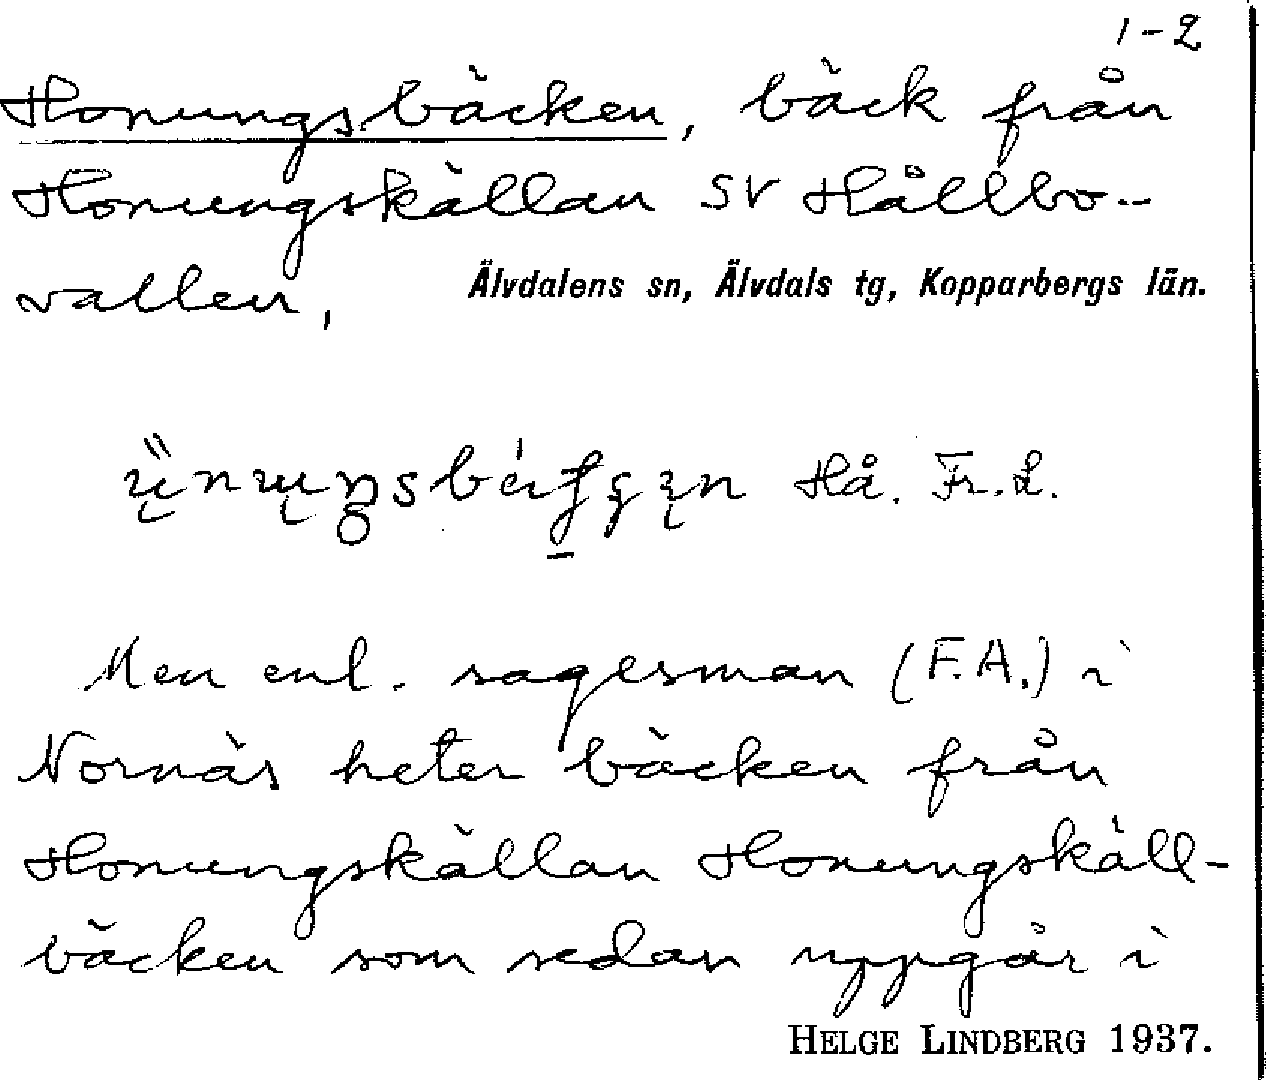 1-2
Honungsbäcken, bäck från
Honungskällan SV Hållbo-
vallen,
Älvdalens sn, Älvdals tg, Kopparbergs län.
Hå. Fr. L.
Men enl. sagesman (F.A.) i
Nornäs heter bäcken från
Honungskällan Honungskäll-
bäcken som sedan uppgår i
HELGE LINDBERG 1937.